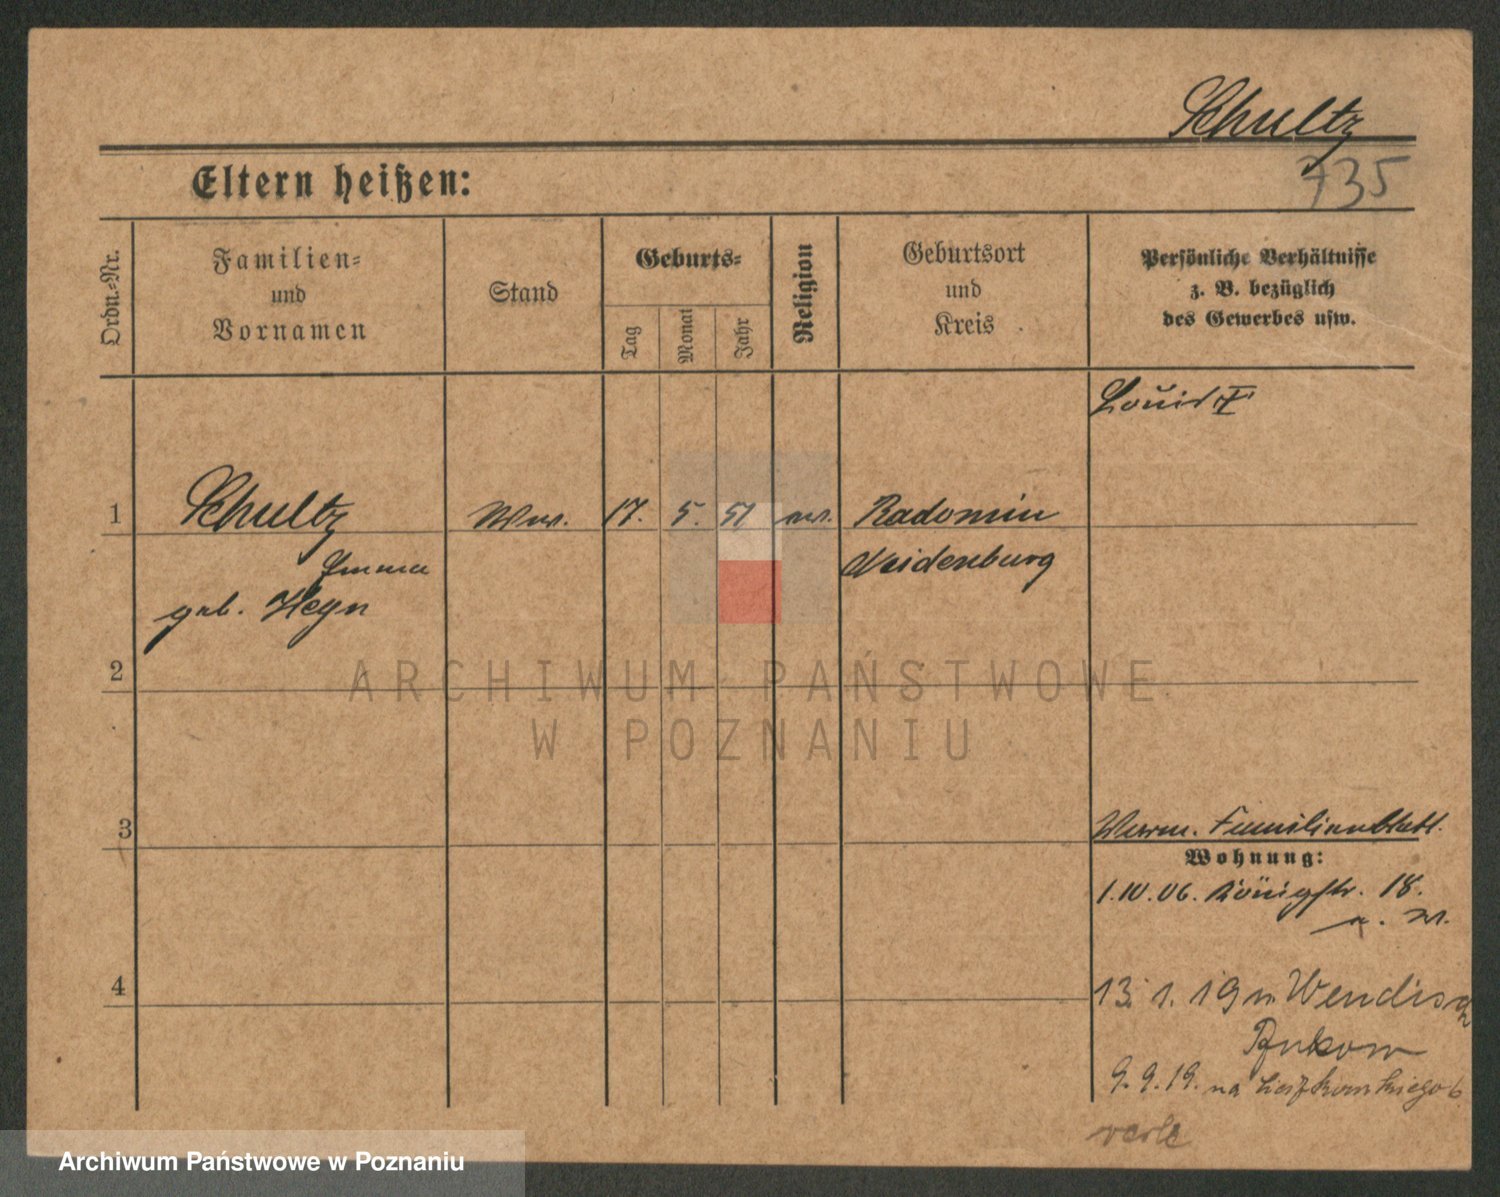 Schultz
735
Eltern heißen:
Ordn.-Nr.
Familien-
und
Vornamen
Stand
Geburts-
Tag
Monat
Jahr
Religion
Geburtsort
und
Kreis
Persönliche Verhältnisse
z. B. bezüglich
des Gewerbes usw.
1 Schultz Ww. 17. 5. 51 ev. Radomin
Emma Neidenburg
geb. Heyn
2
3
Familienblatt.
Wohnung:
1.10.06. Königstr. 18.
4
13. 1. 19 n. Wendisch
9.9.19. na
ARCHIWUM PAŃSTWOWE
W POZNANIU
Archiwum Państwowe w Poznaniu